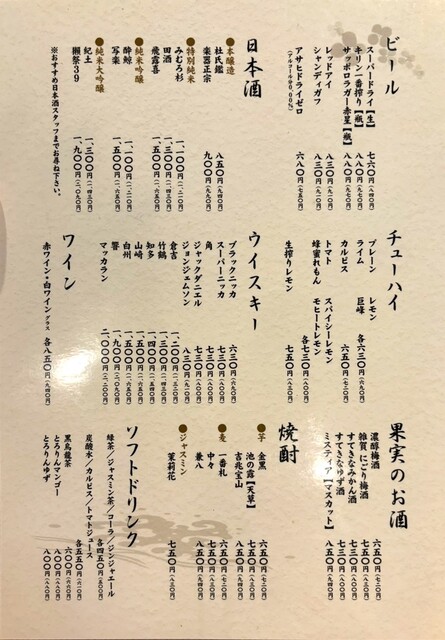 ビール
スーパードライ【生】 七六〇円(八四〇円)
キリン一番搾り【瓶】 八八〇円(九七〇円)
サッポロラガー赤星【瓶】 八八〇円(九七〇円)
レッドアイ 八三〇円(九一〇円)
シャンディガフ 八三〇円(九一〇円)
アサヒドライゼロ 六八〇円(七五〇円)
(アルコール分0.00%)
日本酒
●本醸造
杜氏鑑 八五〇円(九四〇円)
楽器正宗 九〇〇円(九九〇円)
●特別純米
みむろ杉 一、一〇〇円(一、二一〇円)
田酒 一、三〇〇円(一、四三〇円)
飛露喜 一、五〇〇円(一、六五〇円)
●純米吟醸
酔鯨 一、一〇〇円(一、二一〇円)
写楽 一、五〇〇円(一、六五〇円)
●純米大吟醸
紀土 一、三〇〇円(一、四三〇円)
獺祭39 一、九〇〇円(二、〇九〇円)
※おすすめ日本酒スタッフまでお尋ね下さい。
チューハイ
プレーン レモン
ライム 巨峰 各六三〇円(六九〇円)
カルピス 六五〇円(七二〇円)
トマト スパイシーレモン
蜂蜜れもん モヒートレモン 各七三〇円(八〇〇円)
生搾りレモン 七五〇円(八三〇円)
ウイスキー
ブラックニッカ 六三〇円(六九〇円)
スーパーニッカ 七三〇円(八〇〇円)
角 七三〇円(八〇〇円)
ジャックダニエル 七三〇円(八〇〇円)
ジョンジェムソン 八三〇円(九一〇円)
倉吉 一、二〇〇円(一、三二〇円)
竹鶴 一、三〇〇円(一、四三〇円)
知多 一、四〇〇円(一、五四〇円)
山崎 一、五〇〇円(一、六五〇円)
白州 一、五〇〇円(一、六五〇円)
響 一、九〇〇円(二、〇九〇円)
マッカラン 二、〇〇〇円(二、二〇〇円)
ワイン
赤ワイン・白ワイン グラス 各八五〇円(九四〇円)
果実のお酒
濃醇梅酒 六五〇円(七二〇円)
雑賀 にごり梅酒 七五〇円(八三〇円)
すてきなみかん酒 七三〇円(八〇〇円)
すてきなゆず酒 七三〇円(八〇〇円)
ミスティア【マスカット】 八五〇円(九四〇円)
焼酎
●芋
金黒 六五〇円(七二〇円)
池の露【天草】 七五〇円(八三〇円)
吉兆宝山 八五〇円(九四〇円)
●麦
一番札 六五〇円(七二〇円)
中々 七五〇円(八三〇円)
兼八 八五〇円(九四〇円)
●ジャスミン
茉莉花 七五〇円(八三〇円)
ソフトドリンク
緑茶/ジャスミン茶/コーラ/ジンジャエール 各四五〇円(五〇〇円)
炭酸水/カルピス/トマトジュース 各五五〇円(六一〇円)
黒烏龍茶 六〇〇円(六六〇円)
とろりんマンゴー 八〇〇円(八八〇円)
とろりんゆず 八〇〇円(八八〇円)